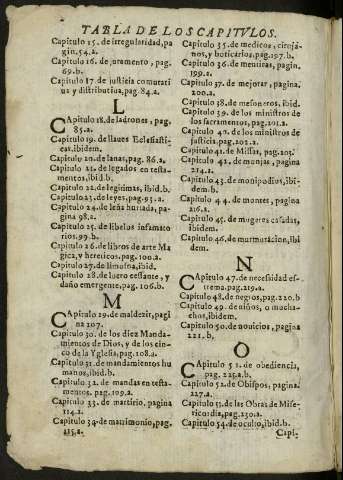 TABLA DE LOS CAPITVLOS.
Capitulo 15. de irregularidad, pa
gin. 54. a.
Capitulo 16. de juramento, pag.
69. b.
Capitulo 17 de justicia comutati
ua y distributiua, pag. 84. a.
L
Capitulo 18. de ladrones, pag.
85. a.
Capitulo 19. de llaues Eclesiasti-
cas, ibidem.
Capitulo 20. de lanas, pag. 86. a.
Capitulo 21. de legados en testa-
mentos, ibid. b.
Capitulo 22. de legitimas, ibid. b.
Capitulo 23. de leyes, pag. 95. a.
Capitulo 24. de leña hurtada, pa-
gina 98. a.
Capitulo 25. de libelos infamato
rios. 99. b.
Capitulo 26. de libros de arte Ma
gica, y hereticos. pag. 100. a.
Capitulo 27. de limosna, ibid.
Capitulo 28. de lucro cessante, y
daño emergente, pag. 106. b.
M
Capitulo 29. de maldezir, pagi
na 107.
Capitulo 30. de los diez Manda-
mientos de Dios, y de los cin-
co de la Yglesia, pag. 108. a.
Capitulo 31. de mandamientos hu
manos, ibid. b.
Capitulo 32. de mandas en testa-
mentos. pag. 109. a.
Capitulo 33. de martirio, pagina
114. a.
Capitulo 34. de matrimonio, pag.
115. a.
Capitulo 35. de medicos, ciruja-
nos, y boticarios, pag. 197. b.
Capitulo 36. de mentiras, pagin.
199. a.
Capitulo 37. de mejorar, pagina.
200. a.
Capitulo 38. de mesoneros, ibid.
Capitulo 39. de los ministros de
los sacramentos, pag. 201. a.
Capitulo 40. de los ministros de
justicia, pag. 202. a.
Capitulo 41. de Missas, pag. 205.
Capitulo 42. de monjas, pagina
214. a.
Capitulo 43. de monipodios, ibi-
dem. b.
Capitulo 44. de montes, pagina
216. a.
Capitulo 45. de mugeres casadas,
ibidem.
Capitulo 46. de murmuracion, ibi
dem.
N
Capitulo 47. de necessidad es-
trema. pag. 219. a.
Capitulo 48. de negros, pag. 220. b
Capitulo 49. de niños, o mucha-
chos, ibidem.
Capitulo 50. de nouicios, pagina
221. b.
O
Capitulo 51. de obediencia,
pag. 225. a. b.
Capitulo 52. de Obispos, pagina.
227. a.
Capitulo 53. de las Obras de Mise-
ricordia, pag. 230. a.
Capitulo 54. de oculto, ibid. b.
Capi-